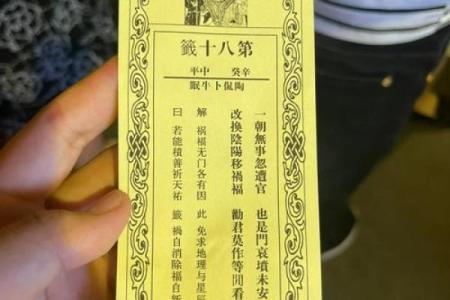 第八十籤
辛癸 中平
陶侃卜牛眠
一朝無事忽遭官 也是門衰墳未安
改換陰陽移禍福 勸君莫作等閒看
解 祸福无门各有因 此 免求地理与星辰
曰 若能積善祈天祐 籤 禍自消除福自新